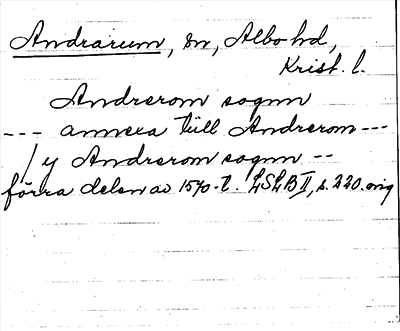 Andrarum, sn, Albo hd,
Krist. l.
Andrerom sognn
--- annexa tüll Andrerom ---
/ y Andrerom sognn --
förra delen av 1540-t. LSLB II, s. 220. orig